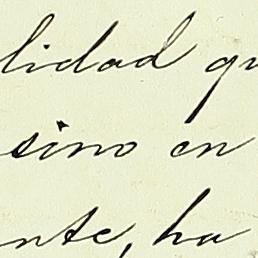 lidad qu
sino en
nte, ha